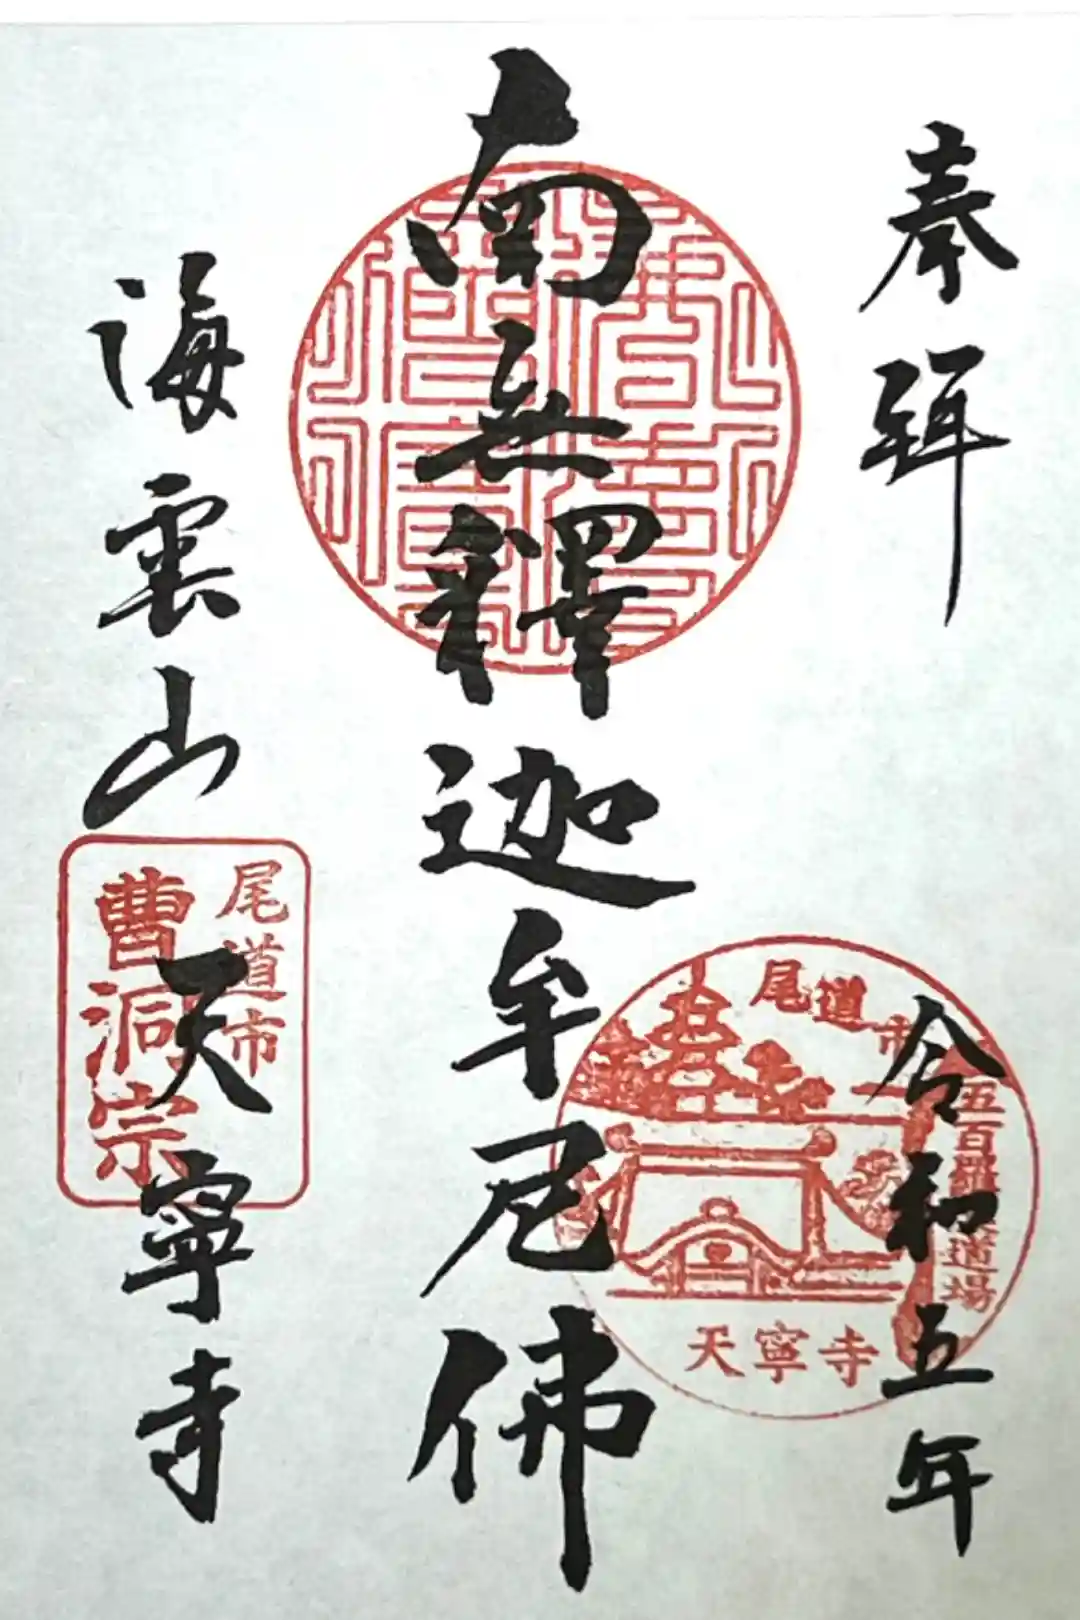 奉拜
令和五年
南無釋迦牟尼佛
海雲山
天寧寺
尾道市
曹洞宗
尾道市
五百羅
道場
天寧寺